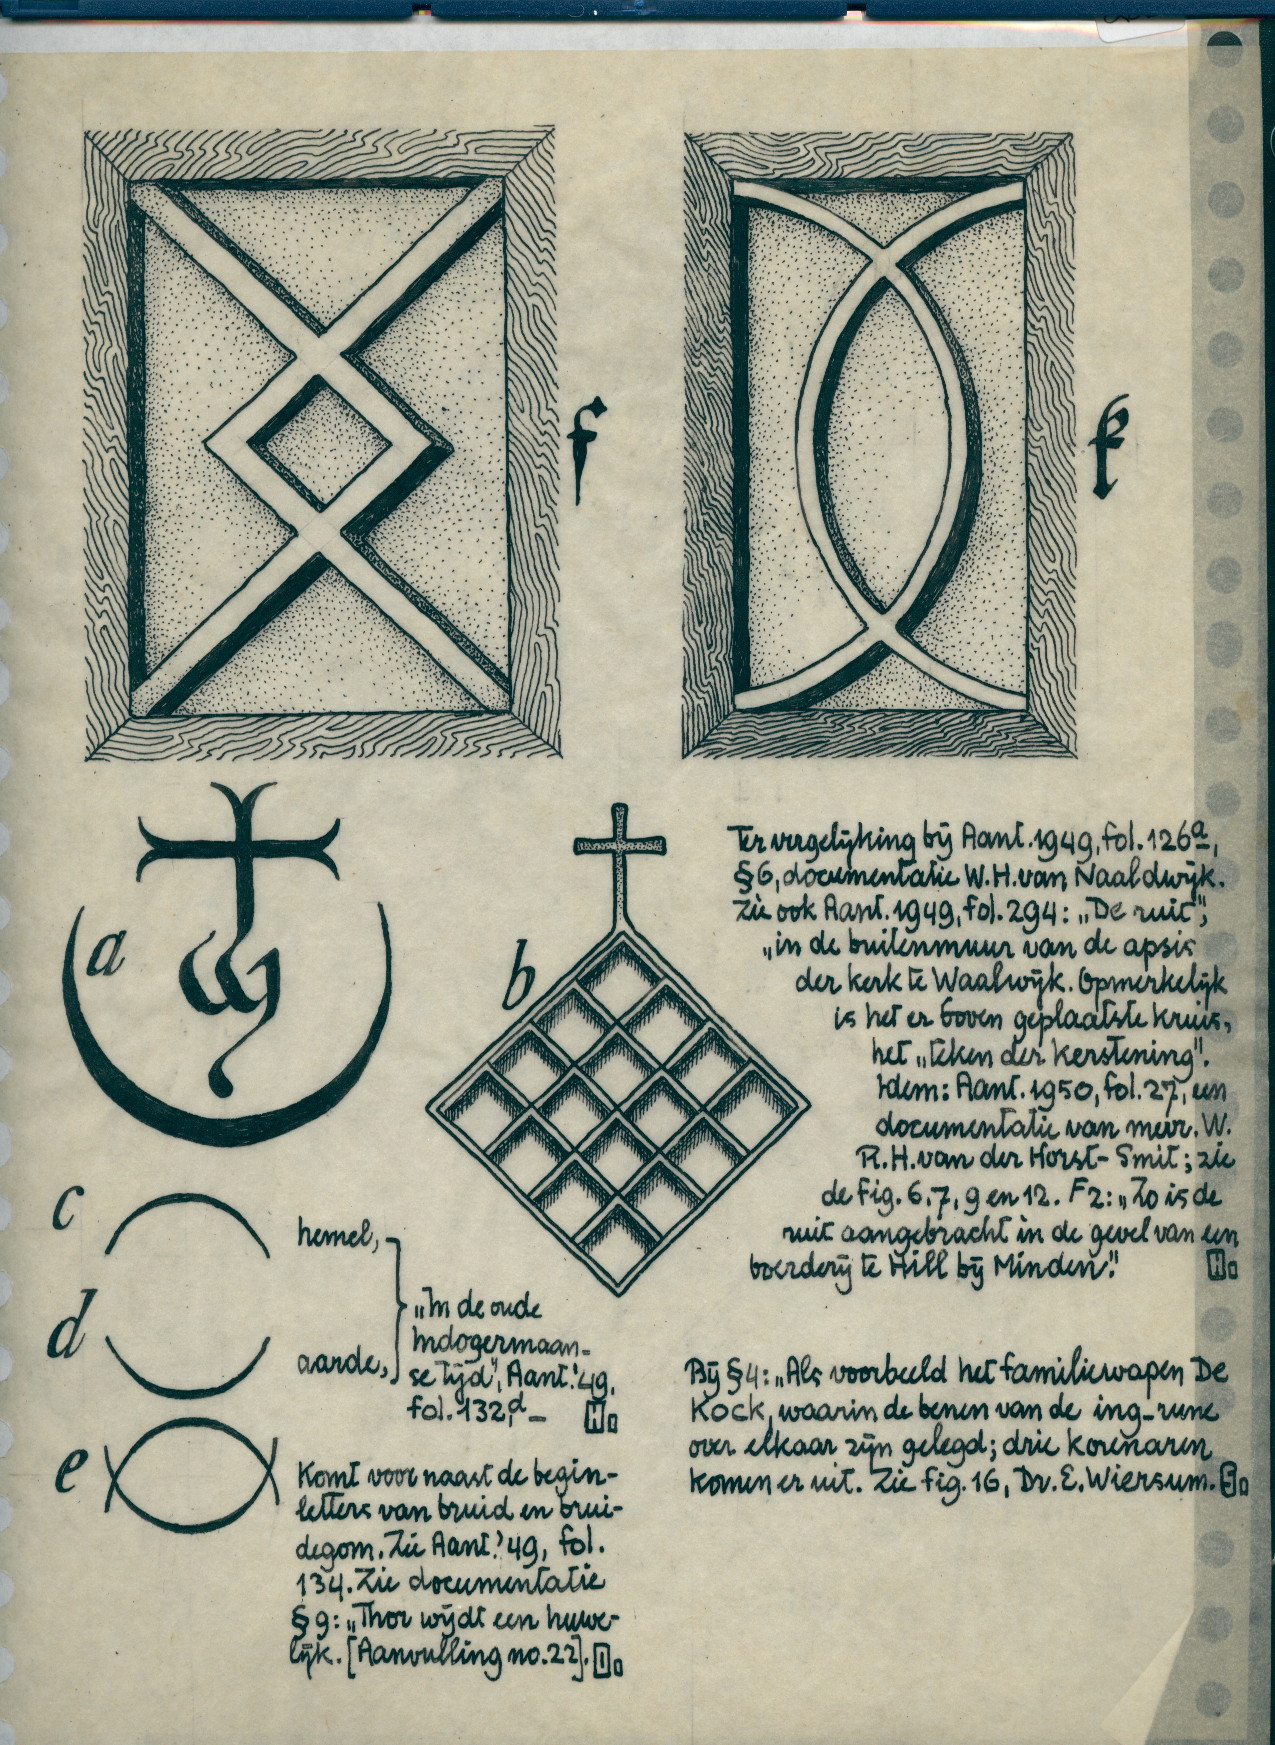 f
k
a
b
Ter vergelijking bij Aant. 1949, fol. 126a,
§6, documentatie W.H. van Naaldwijk.
Zie ook Aant. 1949, fol. 294: „De ruit",
„in de buitenmuur van de apsis
der kerk te Waalwijk. Opmerkelijk
is het er boven geplaatste kruis,
het „teken der kerstening".
Idem: Aant. 1950, fol. 27, een
documentatie van mevr. W.
R.H. van der Horst-Smit; zie
de fig. 6, 7, 9 en 12. F2: „Zo is de
ruit aangebracht in de gevel van een
boerderij te Hill bij Minden."
H.
c
hemel,
d
aarde,
„In de oude
Indogermaan-
se tijd", Aant. '49,
fol. 132,d_
H.
e
Komt voor naast de begin-
letters van bruid en brui-
degom. Zie Aant. '49, fol.
134. Zie documentatie
§9: „Thor wijdt een huwe-
lijk. [Aanvulling no. 22].
Bij §4: „Als voorbeeld het familiewapen De
Kock, waarin de benen van de ing-rune
over elkaar zijn gelegd; drie korenaren
komen er uit. Zie fig. 16, Dr. E. Wiersum.